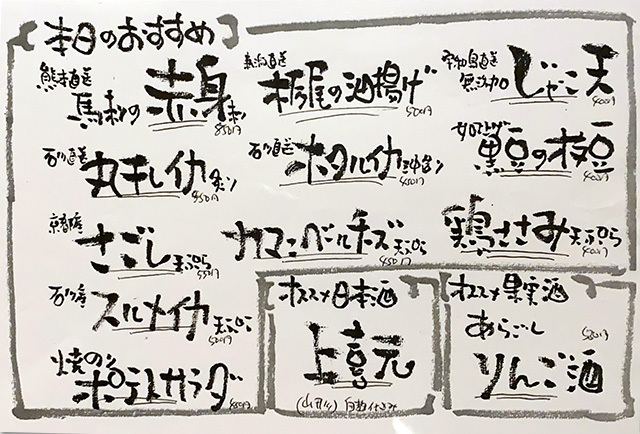 本日のおすすめ
熊本直送 馬肉の赤身 850円
新潟直送 栃尾の油揚げ 500円
宇和島直送 無添加 じゃこ天 400円
石川直送 丸干しイカ 炙り 450円
石川直送 ホタルイカ 450円
黒豆の枝豆 400円
京都産 さごし 天ぷら 550円
カマンベールチーズ 天ぷら 450円
鶏ささみ 天ぷら 400円
石川産 スルメイカ 天ぷら 500円
焼のり ポテトサラダ 450円
オススメ日本酒
上喜元
(山形)
オススメ果実酒
あらごし
りんご酒 580円